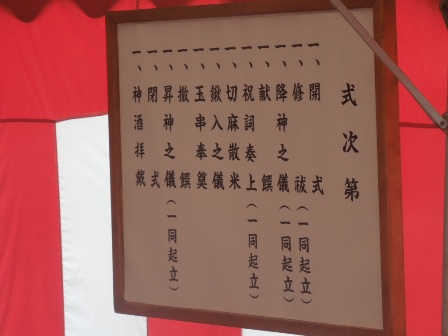 式次第
一、開式
一、修祓(一同起立)
一、降神之儀(一同起立)
一、献饌
一、祝詞奏上(一同起立)
一、切麻散米
一、鍬入之儀
一、玉串奉奠
一、撤饌
一、昇神之儀(一同起立)
一、閉式
一、神酒拝戴